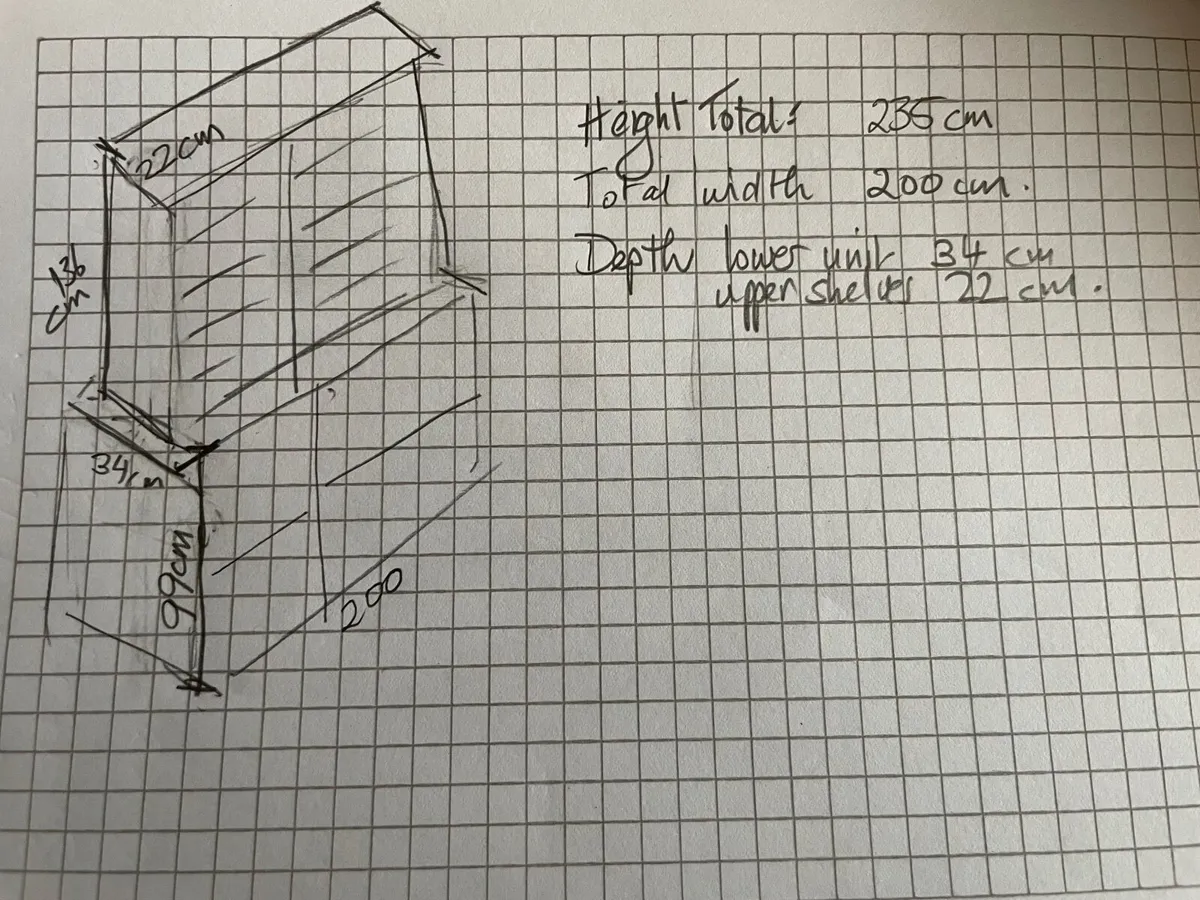 22cm
136
cm
34cm
99cm
200
Height Total: 235 cm
Total width 200 cm.
Depth lower unit 34 cm
upper shelves 22 cm.